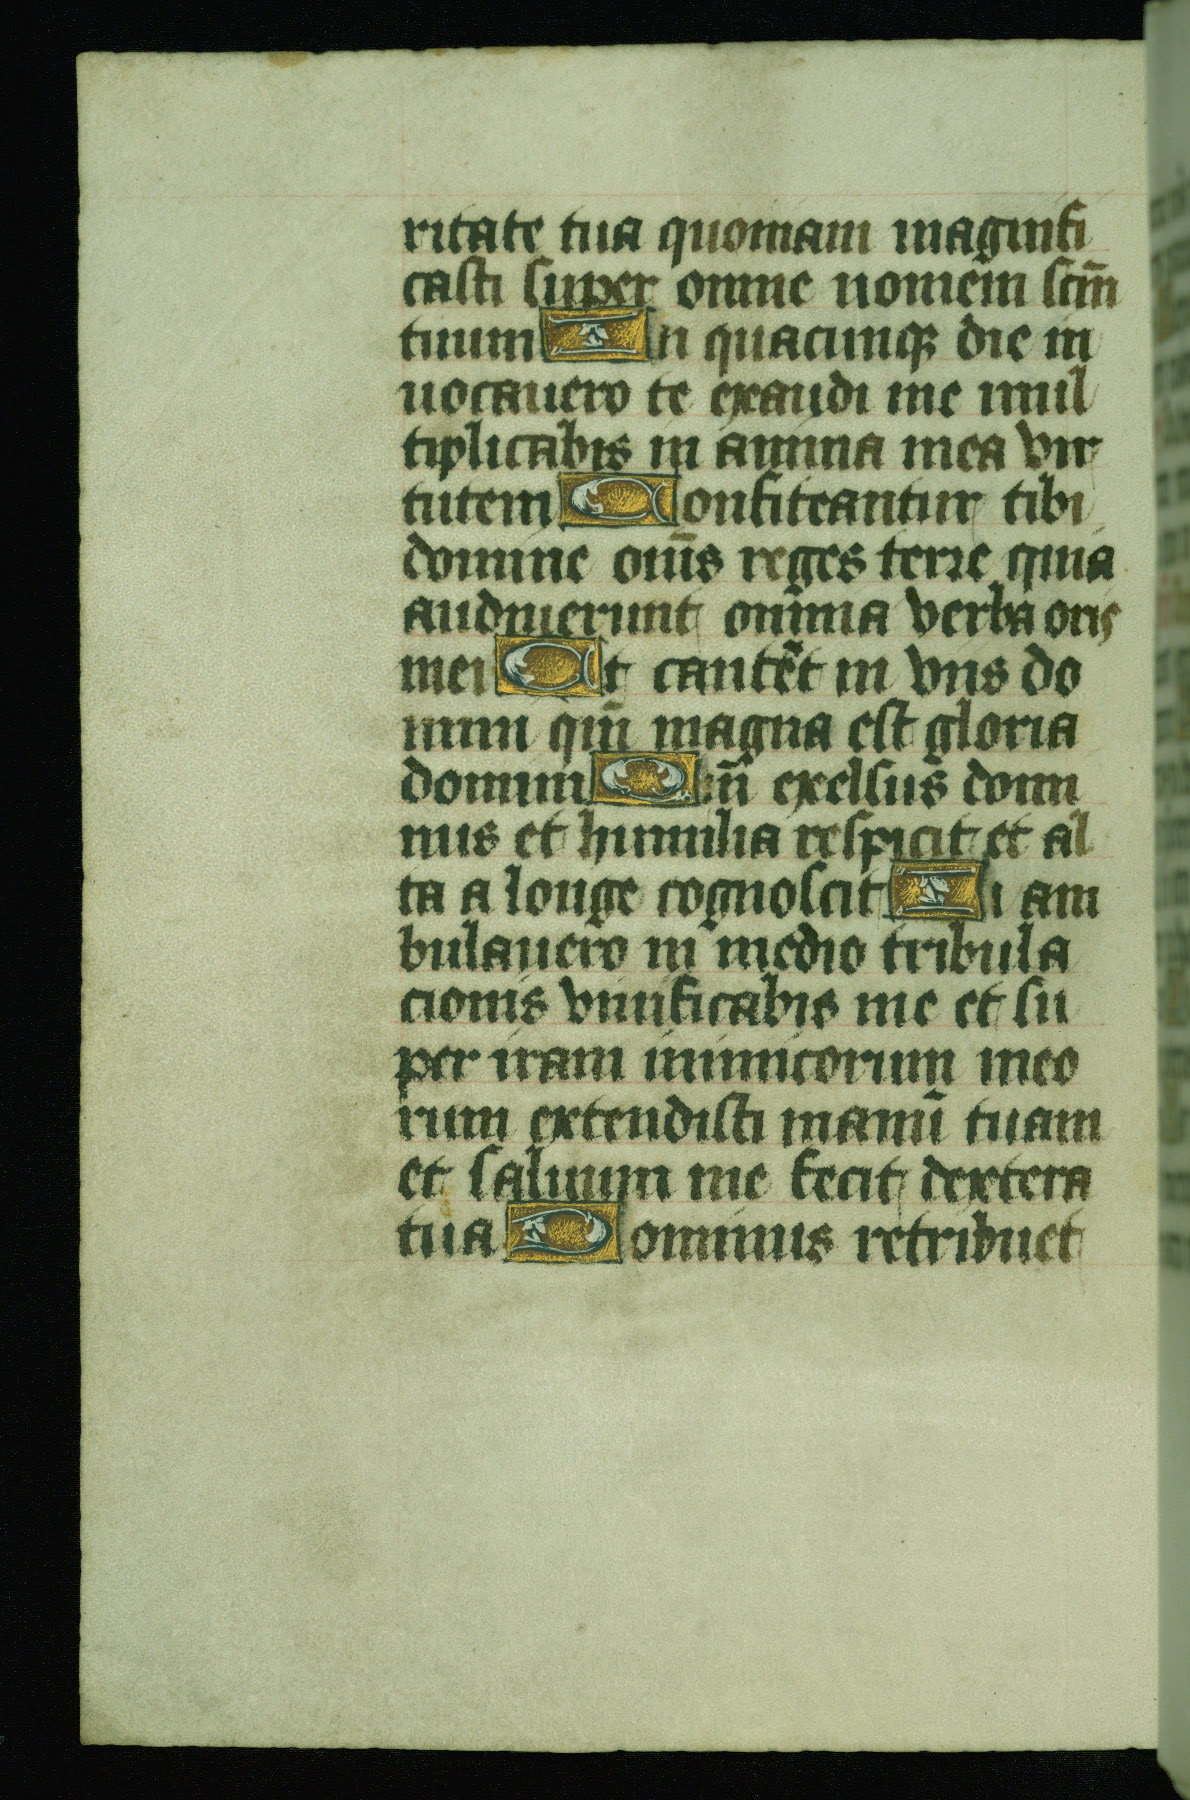 ritate tua quoniam magnifi
casti super omne nomem scm̄
tuum In quacunqꝫ die in
uocauero te exaudi me mul
tiplicabis in anima mea vir
tutem Confiteantur tibi
domine om̄s reges terre quia
audierunt omnia verba oris
mei Et cantēt in viis do
mini qm̄ magna est gloria
domini Qm̄ excelsus domi
nus et humilia respicit et al
ta a longe cognoscit Si am
bulauero in medio tribula
cionis viuificabis me et su
per iram inimicorum meo
rum extendisti manū tuam
et saluum me fecit dextera
tua Dominus retribuet